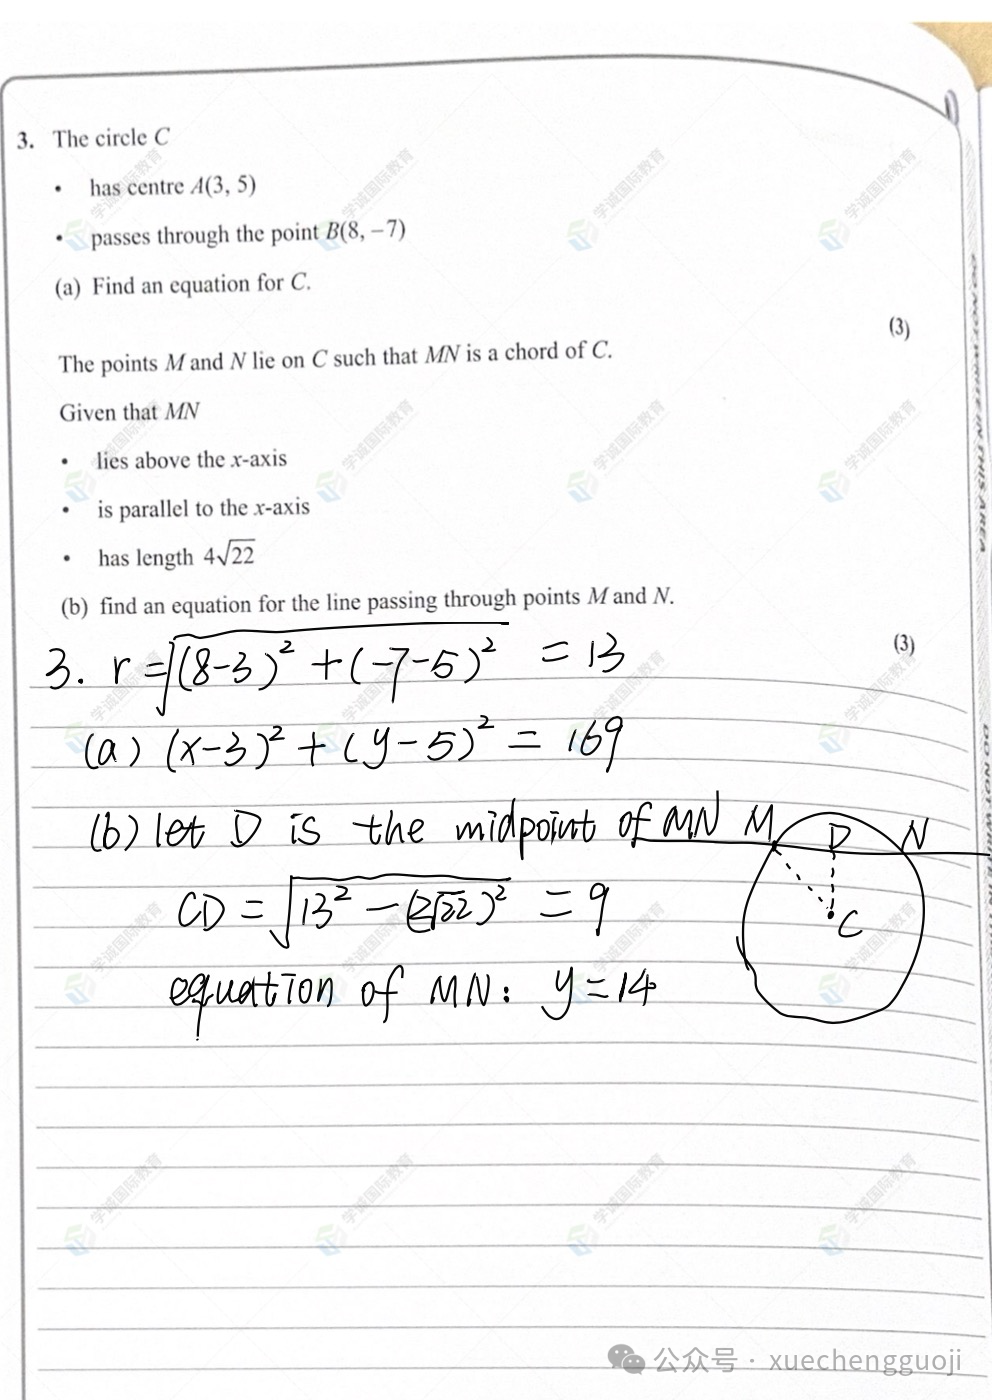 3. The circle C
• has centre A(3, 5)
• passes through the point B(8, −7)
(a) Find an equation for C.
(3)
The points M and N lie on C such that MN is a chord of C.
Given that MN
• lies above the x-axis
• is parallel to the x-axis
• has length 4√22
(b) find an equation for the line passing through points M and N.
(3)
3. r = √((8-3)² + (-7-5)²) = 13
(a) (x-3)² + (y-5)² = 169
(b) let D is the midpoint of MN
M D N
C
CD = √(13² - (2√22)²) = 9
equation of MN: y = 14
DO NOT WRITE IN THIS AREA
学诚国际教育
公众号 · xuechengguoji